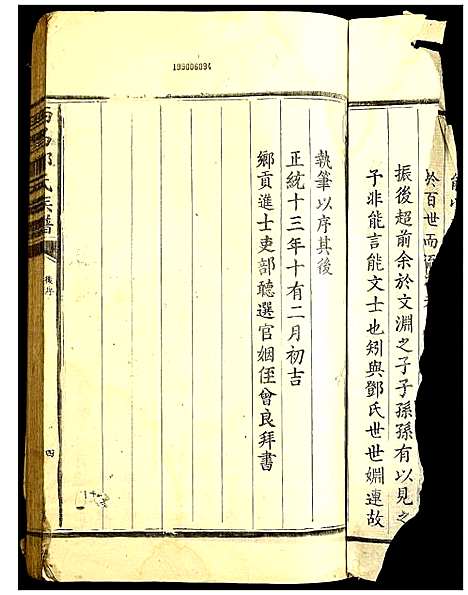 於百世而
振後超前余於文淵之子子孫孫有以見之
予非能言能文士也矧與鄧氏世世姻連故
執筆以序其後
正統十三年十有二月初吉
鄉貢進士吏部聽選官姻侄曾良拜書
西昌鄧氏族譜
後序
四